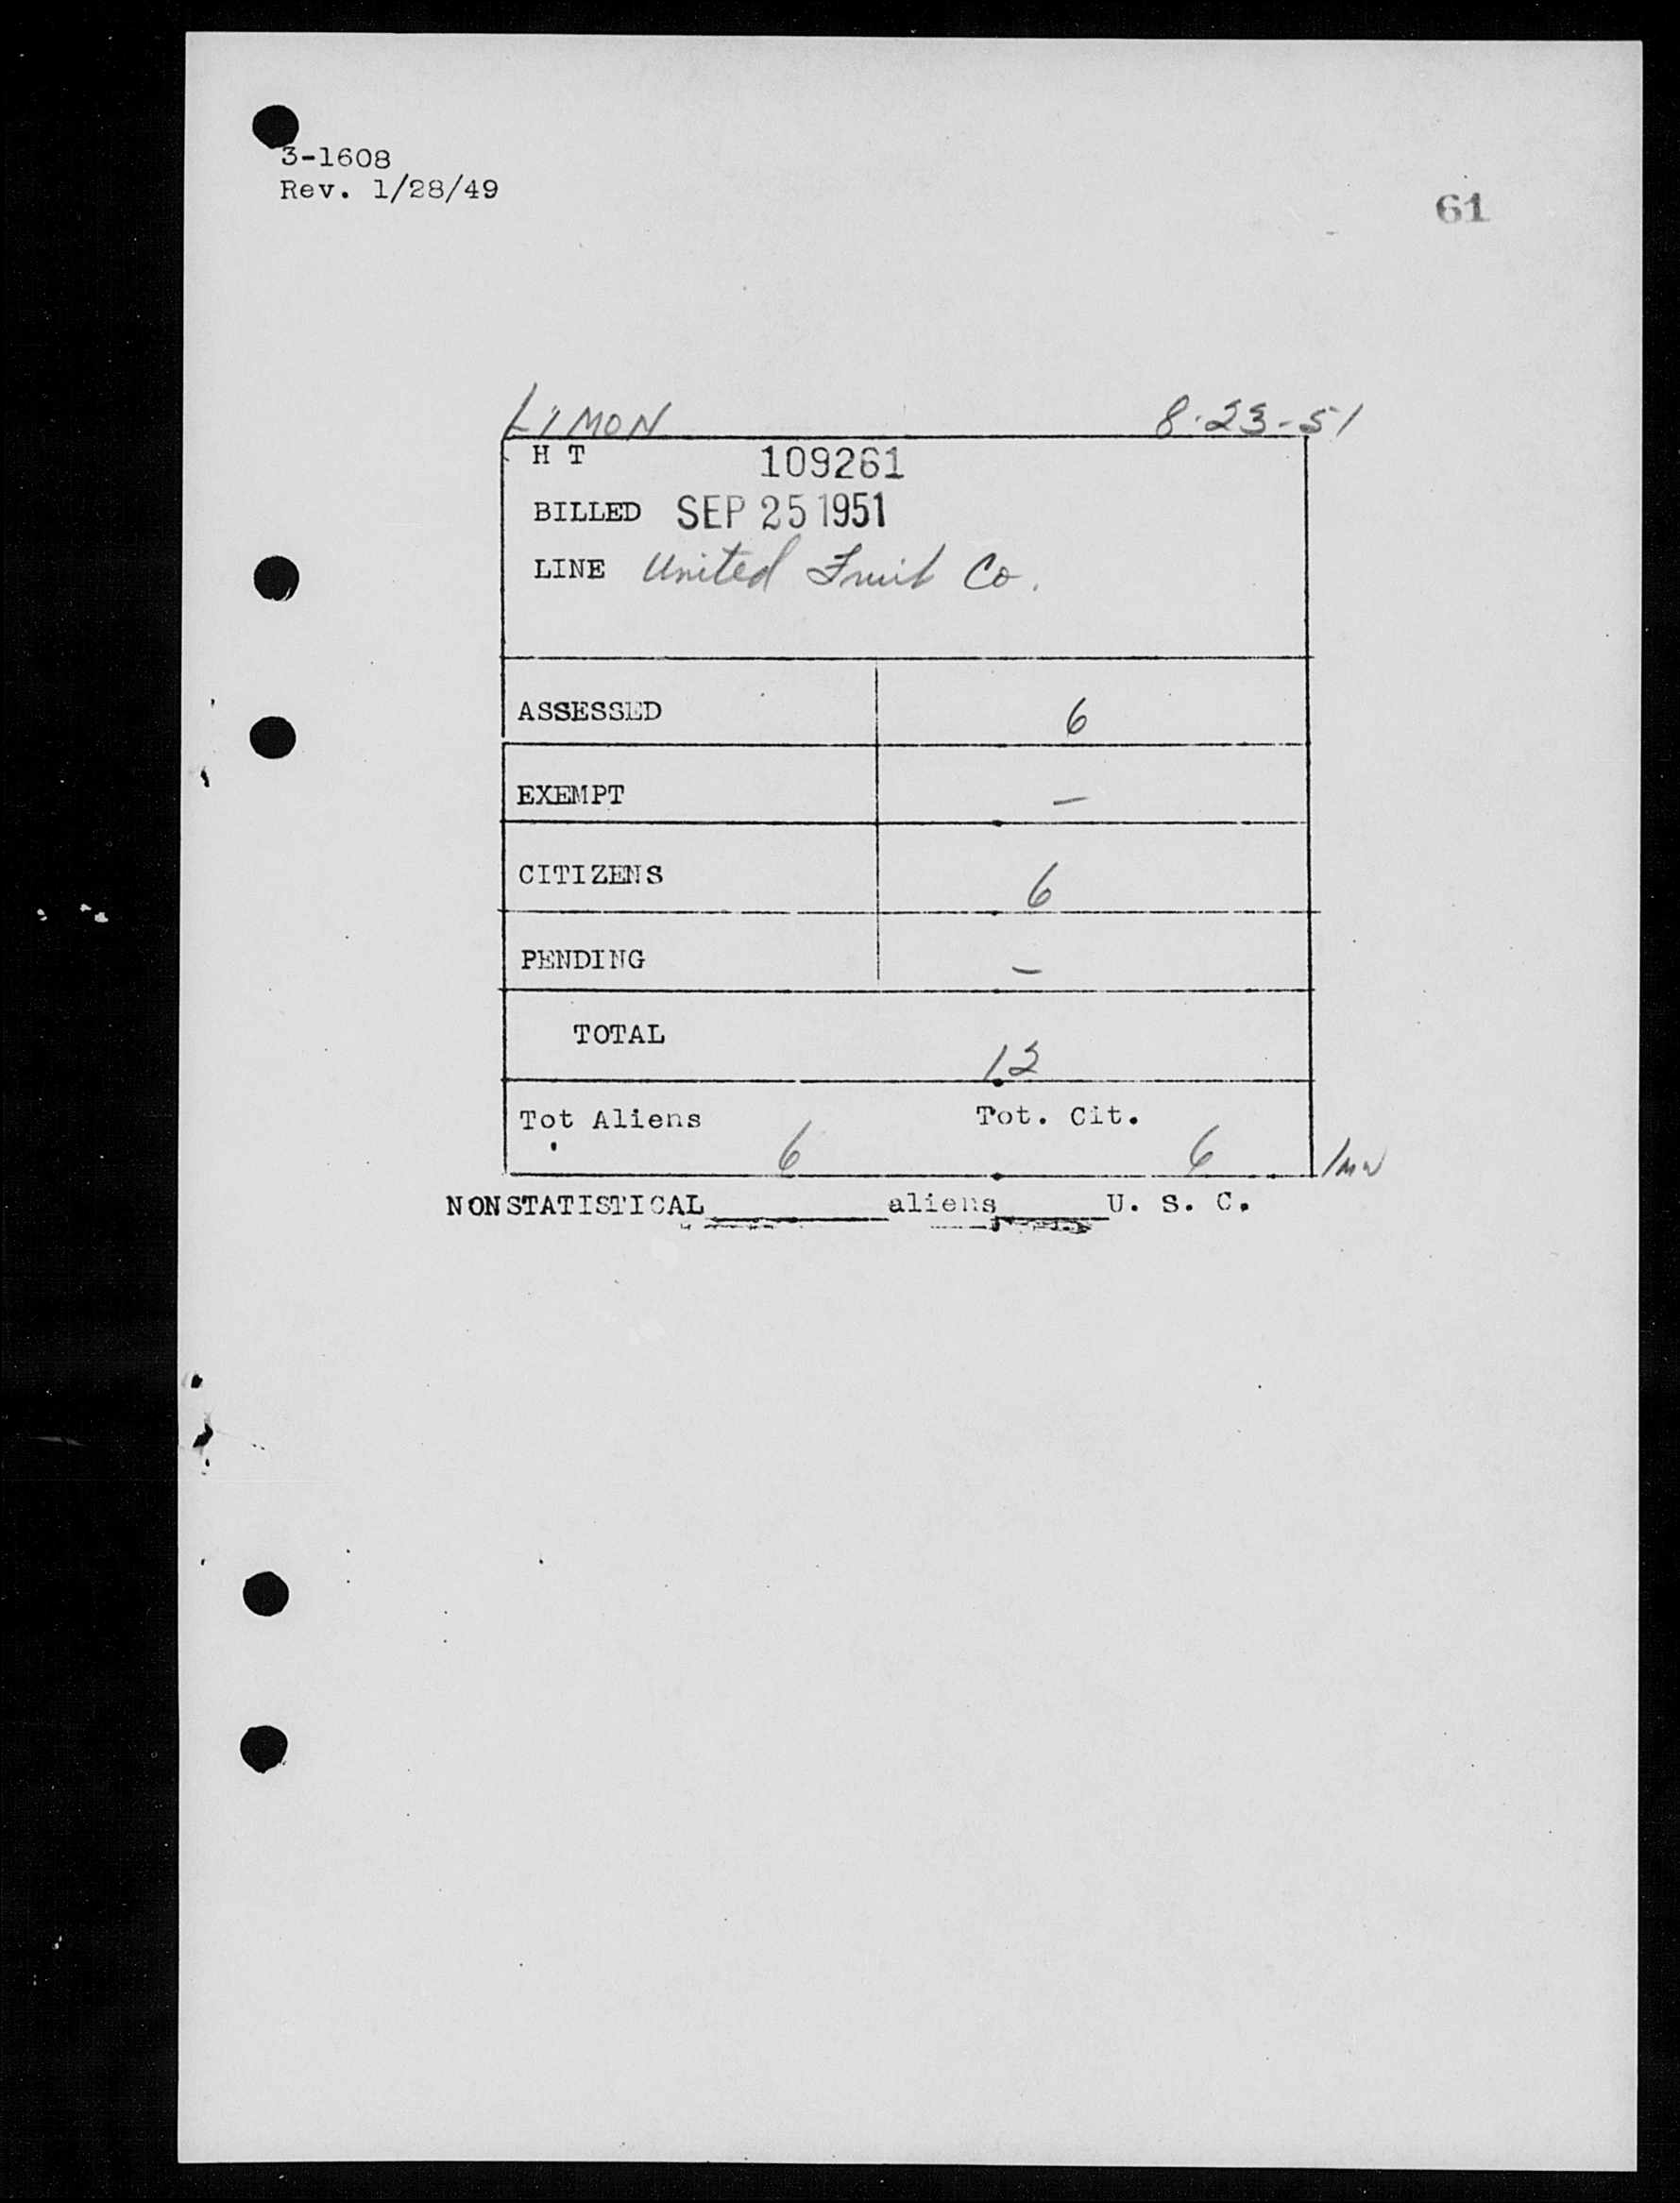 3-1608
Rev. 1/28/49
61
LIMON 8-23-51
H T 109261
BILLED SEP 25 1951
LINE United Fruit Co.
ASSESSED 6
EXEMPT –
CITIZENS 6
PENDING –
TOTAL 12
Tot Aliens 6 Tot. Cit. 6
NONSTATISTICAL aliens U. S. C.